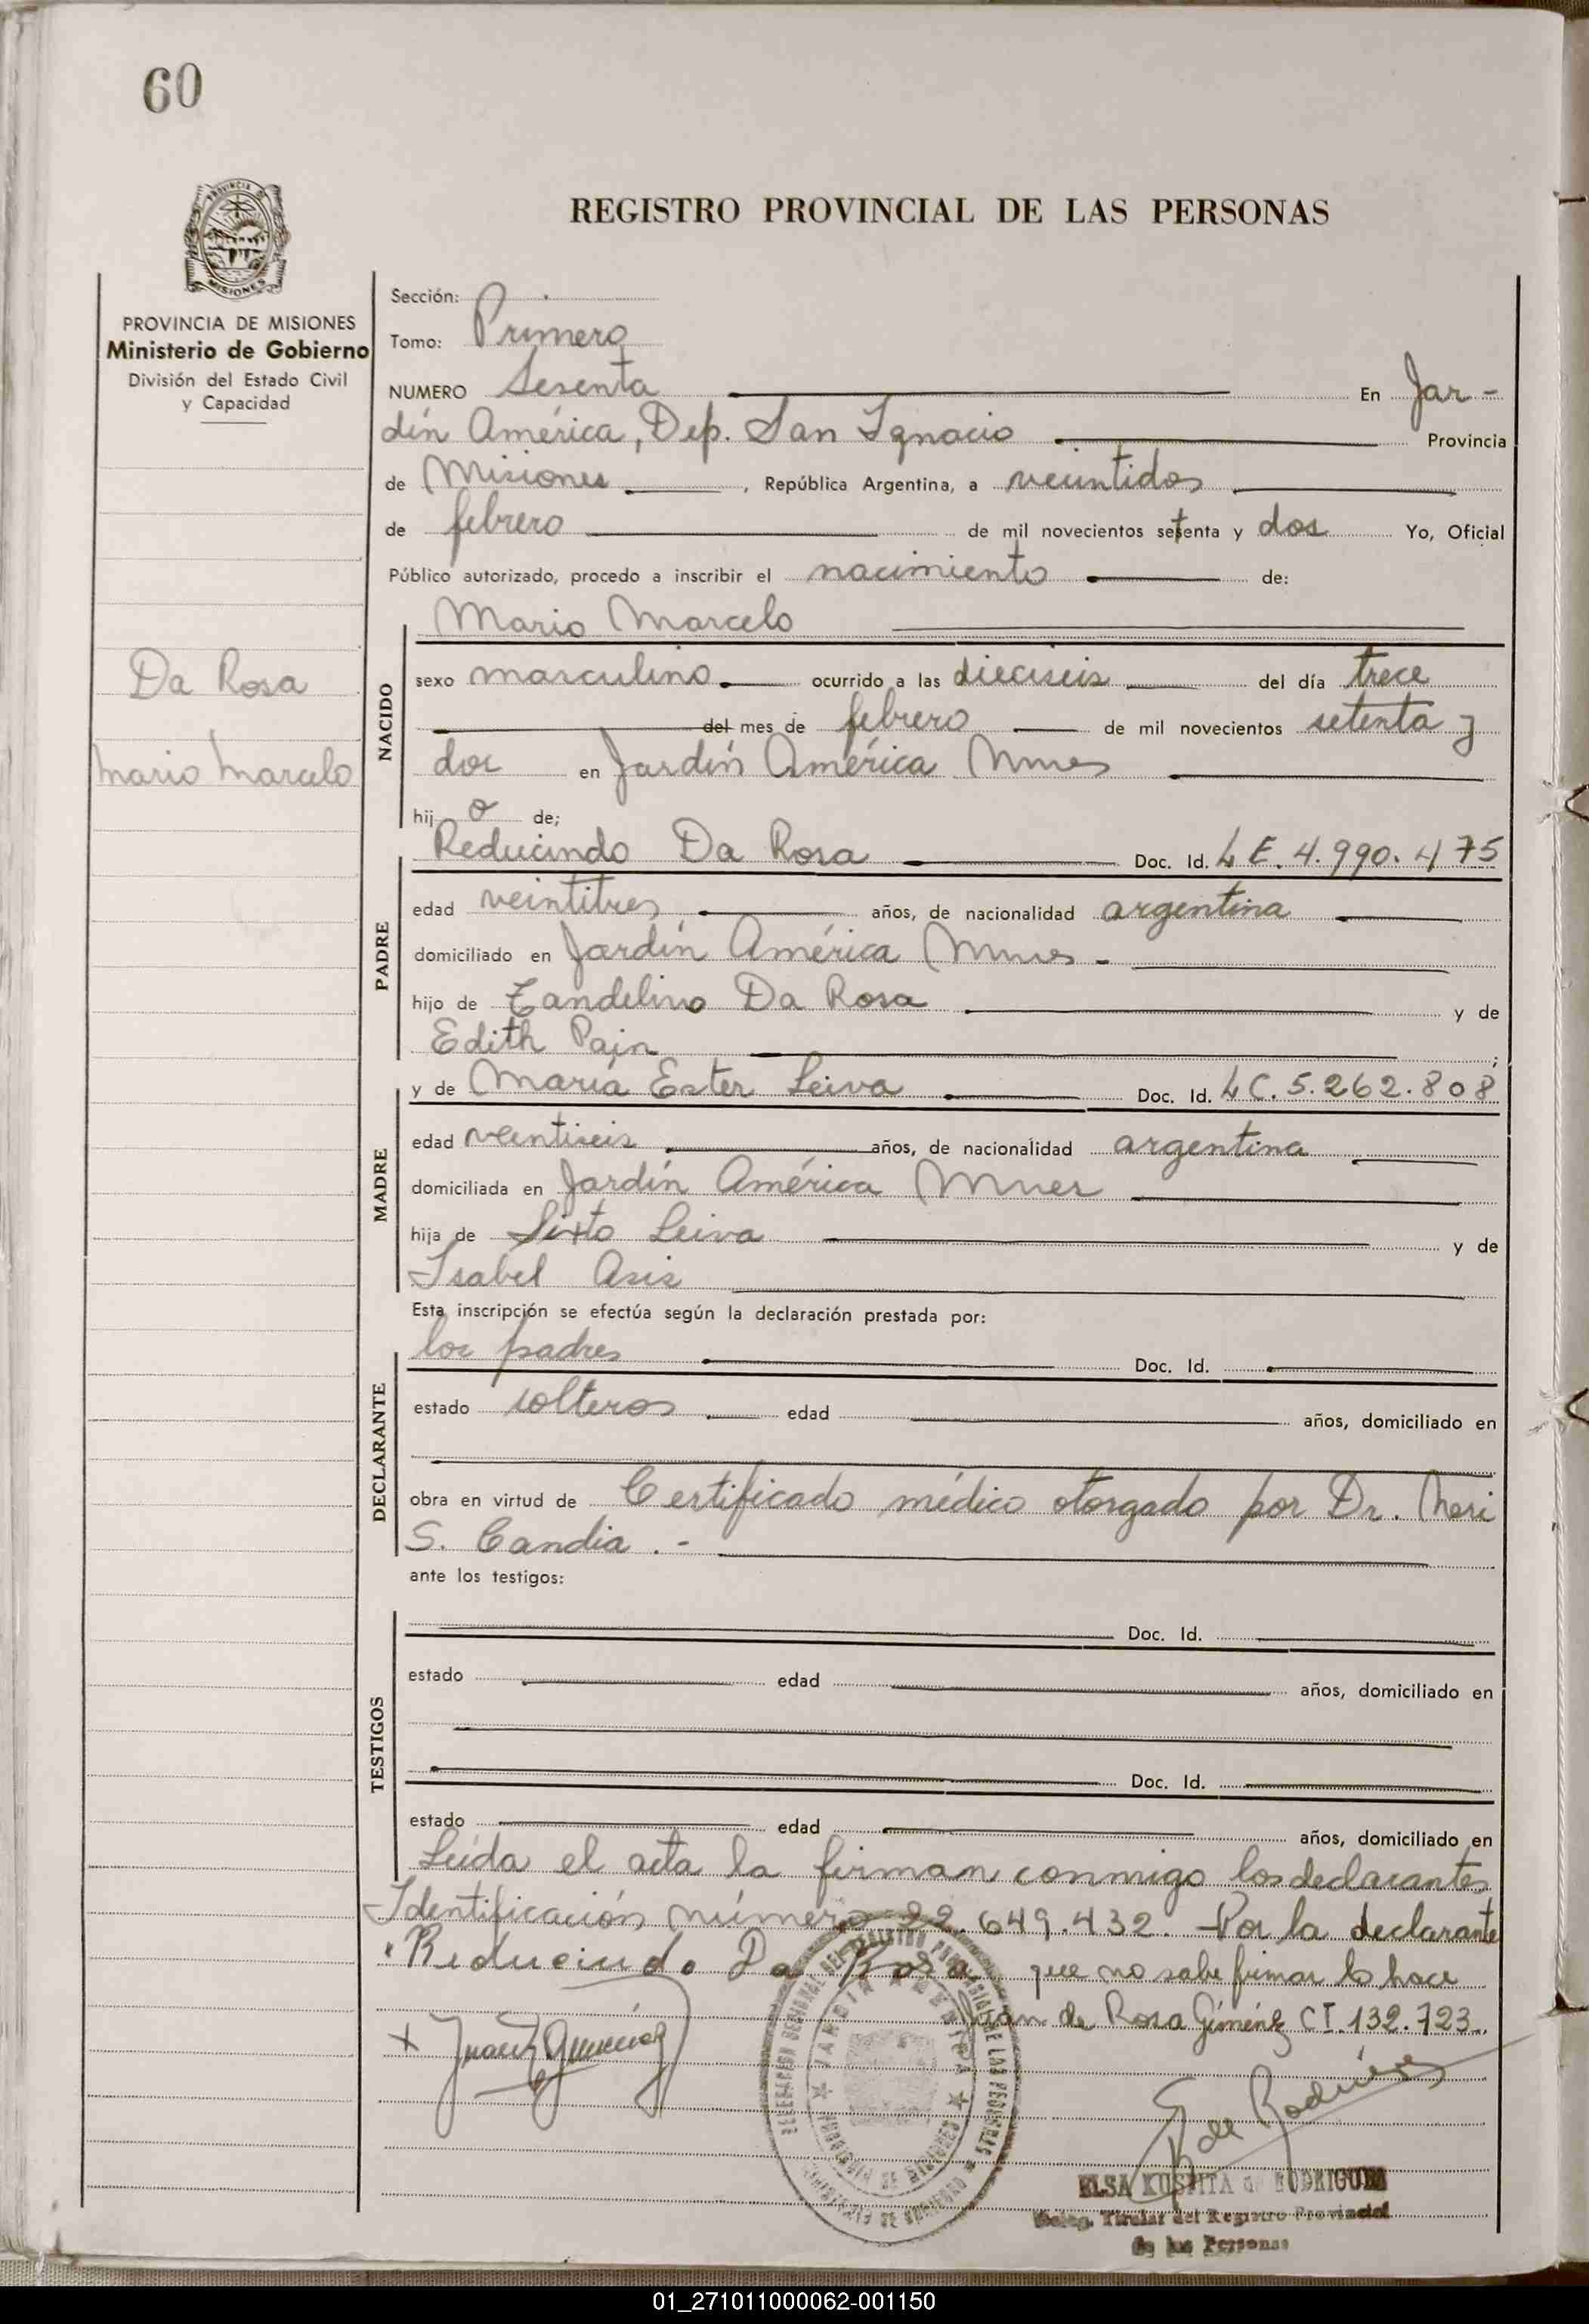 60
REGISTRO PROVINCIAL DE LAS PERSONAS
PROVINCIA DE MISIONES
Ministerio de Gobierno
División del Estado Civil
y Capacidad
Da Rosa
Mario Marcelo
Sección:
Tomo: Primero
NUMERO Sesenta En Jar-
dín América, Dep. San Ignacio Provincia
de Misiones, República Argentina, a veintidos
de febrero de mil novecientos setenta y dos Yo, Oficial
Público autorizado, procedo a inscribir el nacimiento de:
Mario Marcelo
NACIDO
sexo masculino. ocurrido a las dieciseis del día trece
del mes de febrero de mil novecientos setenta y
dos en Jardín América Mnes
hijo de;
Reducindo Da Rosa Doc. Id. L E. 4.990.475
PADRE
edad veintitres, años, de nacionalidad argentina
domiciliado en Jardín América Mnes -
hijo de Tandelino Da Rosa y de
Edith Pain ;
y de María Ester Leiva Doc. Id. LC. 5.262.808
MADRE
edad veintiseis años, de nacionalidad argentina
domiciliada en Jardín América Mnes
hija de Sixto Leiva y de
Isabel Asis
Esta inscripción se efectúa según la declaración prestada por:
los padres Doc. Id.
DECLARANTE
estado solteros edad años, domiciliado en
obra en virtud de Certificado médico otorgado por Dr. Neri
S. Candia .-
ante los testigos:
Doc. Id.
TESTIGOS
estado edad años, domiciliado en
Doc. Id.
estado edad años, domiciliado en
Leída el acta la firman conmigo los declarantes
Identificación número 22.649.432. Por la declarante
Reducindo Da Rosa que no sabe firmar lo hace
Juan de Rosa Giménez CI. 132.723.
x Juan Gimenez
E de Rodriguez
ELSA KUSPITA de RODRIGUEZ
Deleg. Titular del Registro Provincial
de las Personas
01_271011000062-001150